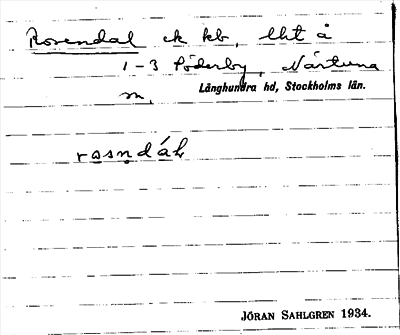 Rosendal ek kb, lht å
1-3 Söderby, Närtuna
sn, Långhundra hd, Stockholms län.
rosndál
JÖRAN SAHLGREN 1934.